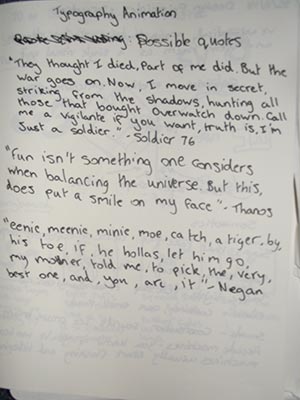 Typography Animation
Possible quotes
"They thought I died, Part of me did. But the
war goes on. Now, I move in secret,
striking from the shadows, hunting all
those that bought Overwatch down. Call
me a vigilante if you want, truth is, I'm
Just a soldier." - Soldier 76
"Fun isn't something one considers
when balancing the universe. But this,
does put a smile on my face" - Thanos
"eenie, meenie, minie, moe, catch, a tiger, by,
his toe, if, he hollas, let him go,
my mother, told me, to pick, the, very,
best one, and, you, are, it" - Negan